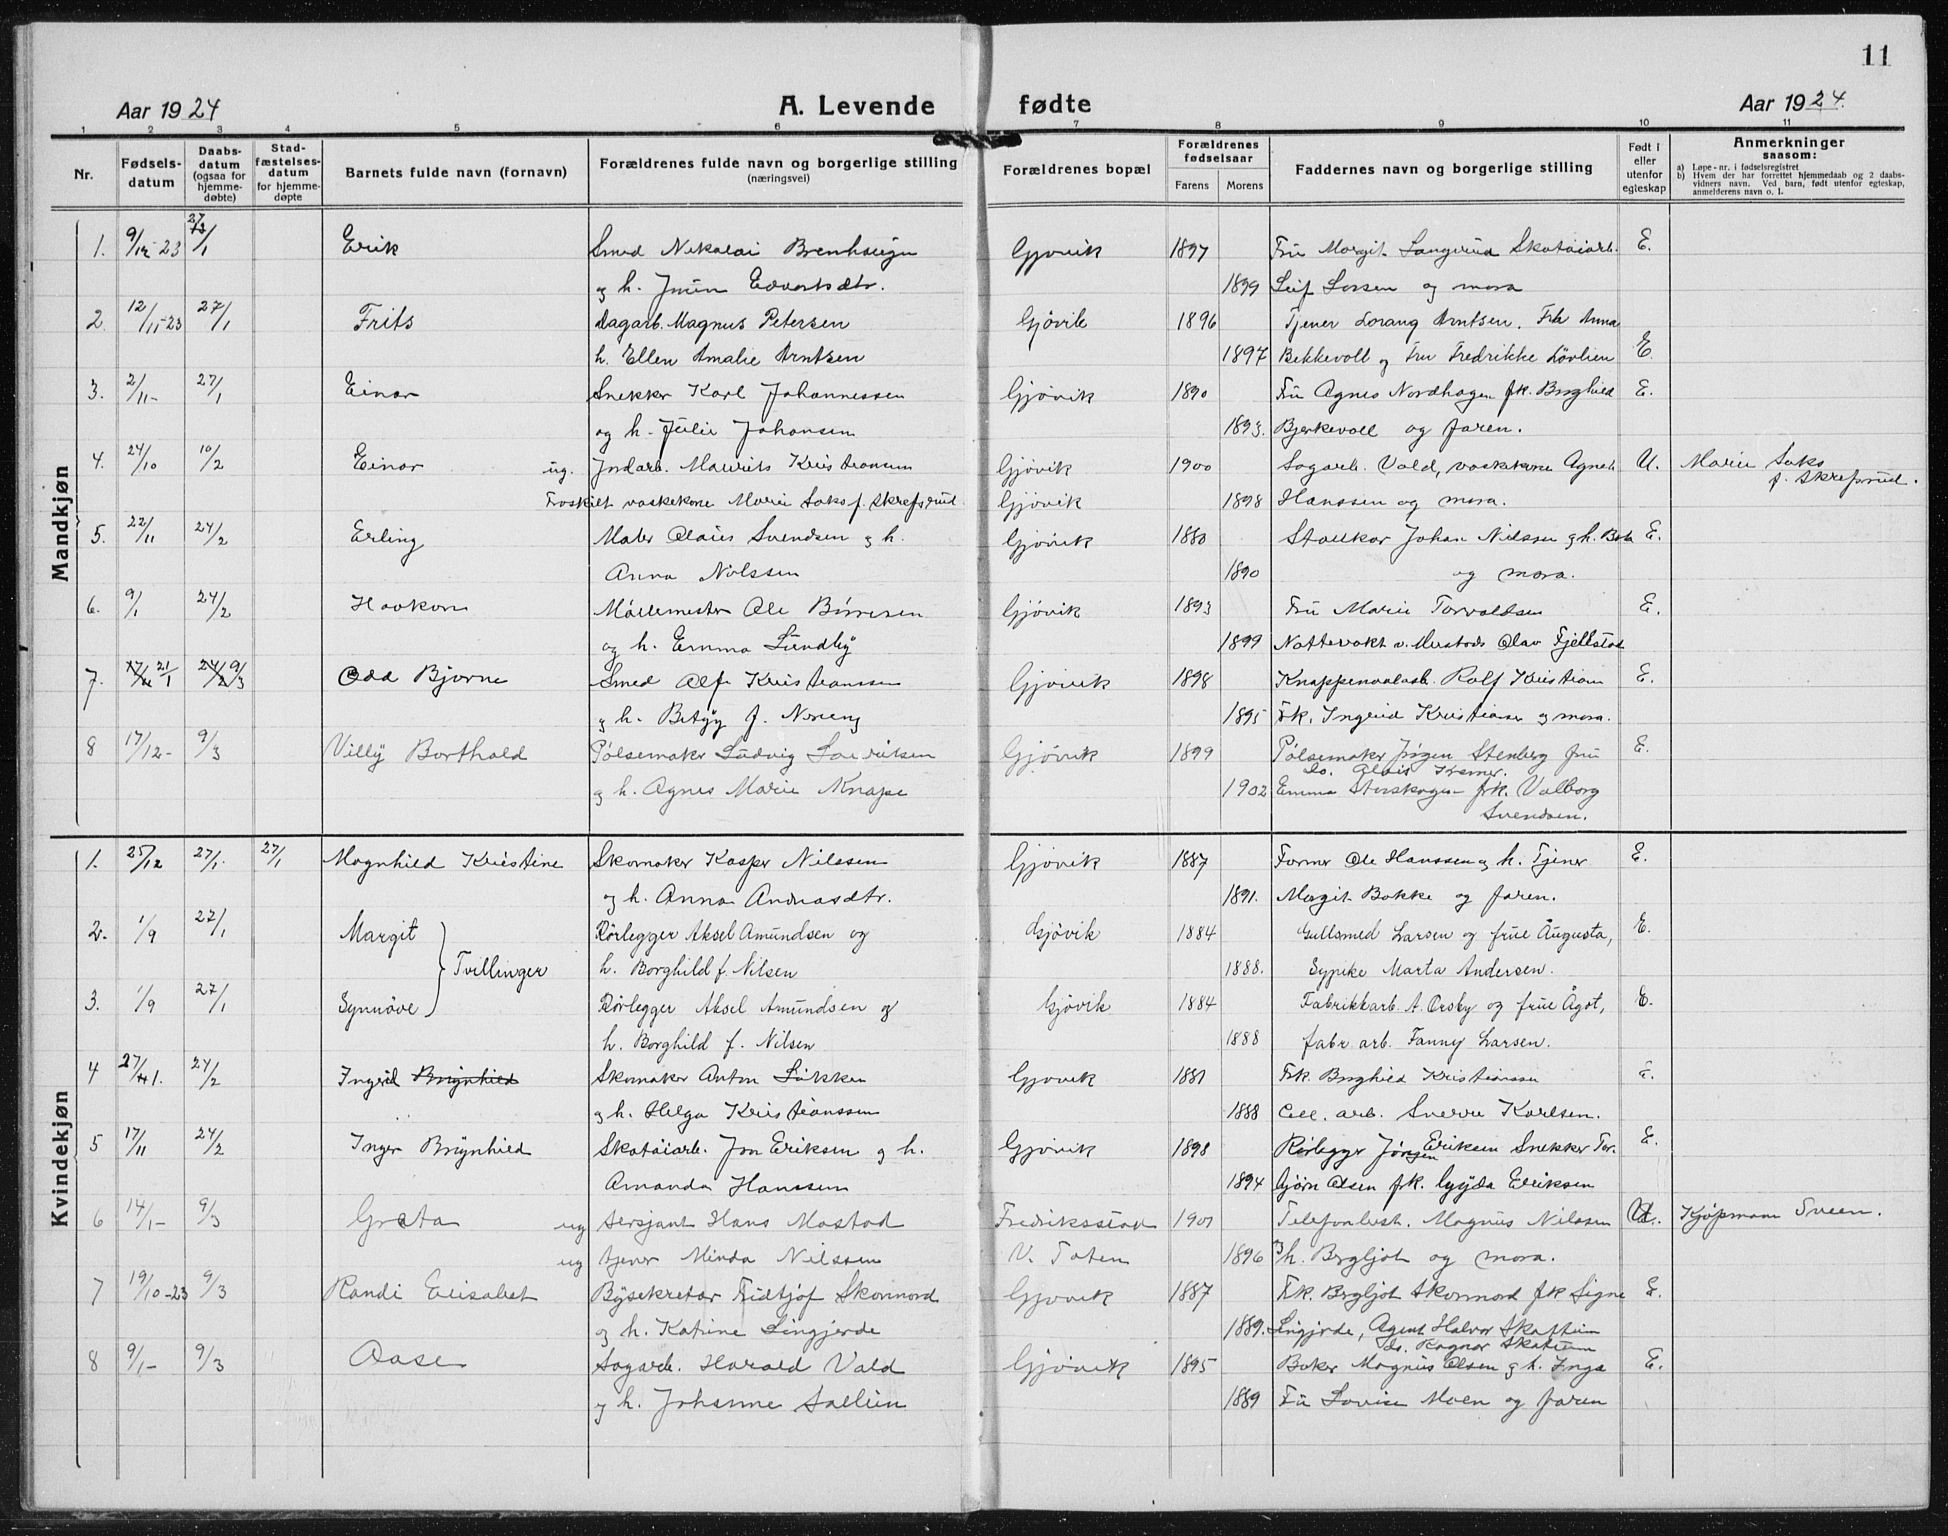 11
Aar 1924 A. Levende fødte Aar 1924.
1 2 3 4 5 6 7 8 9 10 11
Nr. Fødselsdatum Daabsdatum (ogsaa for hjemmedøbte) Stadfæstelsesdatum for hjemmedøpte Barnets fulde navn (fornavn) Forældrenes fulde navn og borgerlige stilling (næringsvei) Forældrenes bopæl Forældrenes fødselsaar Farens Morens Faddernes navn og borgerlige stilling Født i eller utenfor egteskap Anmerkninger saasom:
a) Løpe-nr. i fødselsregistret
b) Hvem der har forrettet hjemmedaab og 2 daabsvidners navn. Ved barn, født utenfor egteskap, anmelderens navn o. l.
Mandkjøn
1. 9/12-23 27/1 Erik Smed Nikolai Brenhaugn Gjøvik 1897 Fru Margit Langerud Skotøiarb. E.
og h. Edvartsdtr. 1899 Leif Larsen og mora
2. 12/11-23 27/1 Frits Dagarb. Magnus Petersen Gjøvik 1896 Tjener Lorang Arntsen. Frk Anna
h. Ellen Amalie Arntsen 1897 Bekkevoll og Fru Fredrikke Løvlien E.
3. 2/11- 27/1 Einar Snekker Karl Johannessen Gjøvik 1890 Fru Agnes Nordhagen frk. Borghild E.
og h. Julie Johansen 1893. Bjerkevoll og faren.
4. 24/10 10/2 Einar ug. Jordarb. Maurits Kristiansen Gjøvik 1900 Sagarb. Vald, vaskekone Agnes U. Marie Saks
Fraskilt vaskekone Marie Saks f. Skrefsrud. Gjøvik 1898 Hanssen og mora. f. Skrefsrud.
5. 22/11 24/2 Erling Maler Olaus Svendsen og h. Gjøvik 1880 Johan Nilssen og h. E.
Anna Nilssen 1890 og mora.
6. 9/1 24/2 Haakon Møllemester Ole Børresen Gjøvik 1893 Fru Marie Torvaldsen E.
og h. Emma Lundby 1899 Nattevakt v. Mustads Olav Fjellstad
7. 21/1 9/3 Odd Bjarne Smed Alf Kristianssen Gjøvik 1898 Rolf Kristian E.
og h. Betzy f. Noreng 1895 Frk. Ingrid Kristiansen og mora.
8 17/12- 9/3 Villy Borthald Pølsemaker Ludvig Lauritsen Gjøvik 1899 Pølsemaker Jørgen Stenberg fru E.
do. Alois Kremer.
og h. Agnes Marie Knape 1902 Emma Storskogen frk. Valborg
Svendsen.
Kvindekjøn
1. 25/12 27/1. 27/1 Magnhild Kristine Skomaker Kasper Nilssen Gjøvik 1887 Former Ole Hanssen og h. Tjener E.
og h. Anna Andreasdtr. 1891. Margit Bakke og faren.
2. 1/9 27/1 Margit Rørlegger Aksel Amundsen og Gjøvik 1884 Gullsmed Larsen og frue Augusta, E.
Tvillinger h. Borghild f. Nilsen 1888. Sypike Marta Andersen.
3. 1/9 27/1 Synnøve Rørlegger Aksel Amundsen og Gjøvik 1884 Fabrikkarb. A. Orsby og frue Ågot, E.
h. Borghild f. Nilsen 1888 fabr. arb. Fanny Larsen.
4 27/11. 24/2 Ingrid Brynhild Skomaker Anton Løkken Gjøvik 1881 Frk. Borghild Kristianssen E.
og h. Helga Kristianssen 1888 Cell. arb. Sverre Karlsen.
5 17/11 24/2 Inger Brynhild Skotøiarb. Jon Eriksen og h. Gjøvik 1898 Rørlegger Jørgen Eriksen Snekker Tor- E.
Amanda Hanssen 1894 bjørn Olsen frk. Gyda Eriksen
6 14/1- 9/3 Greta ug Sersjant Hans Mostad Fredriksstad 1901 Telefonbest. Magnus Nilssen U. Kjøpmann Sveen.
ug tjener Minda Nilssen V. Toten 1896 og h. Bergljot og mora.
7 19/10-23 9/3 Randi Elisabet Bysekretær Fridtjof Skonnord Gjøvik 1887 Frk. Bergljot Skonnord frk Signe E.
og h. Katrine Lingjerde 1889. Lingjerde, Agent Halvor Skattum
do. Ragnar Skattum
8 9/1- 9/3 Aase Sagarb. Harald Vald Gjøvik 1895 Baker Magnus Olsen og h. Inga E.
og h. Johanne Sollien 1889 Fru Lovise Moen og faren